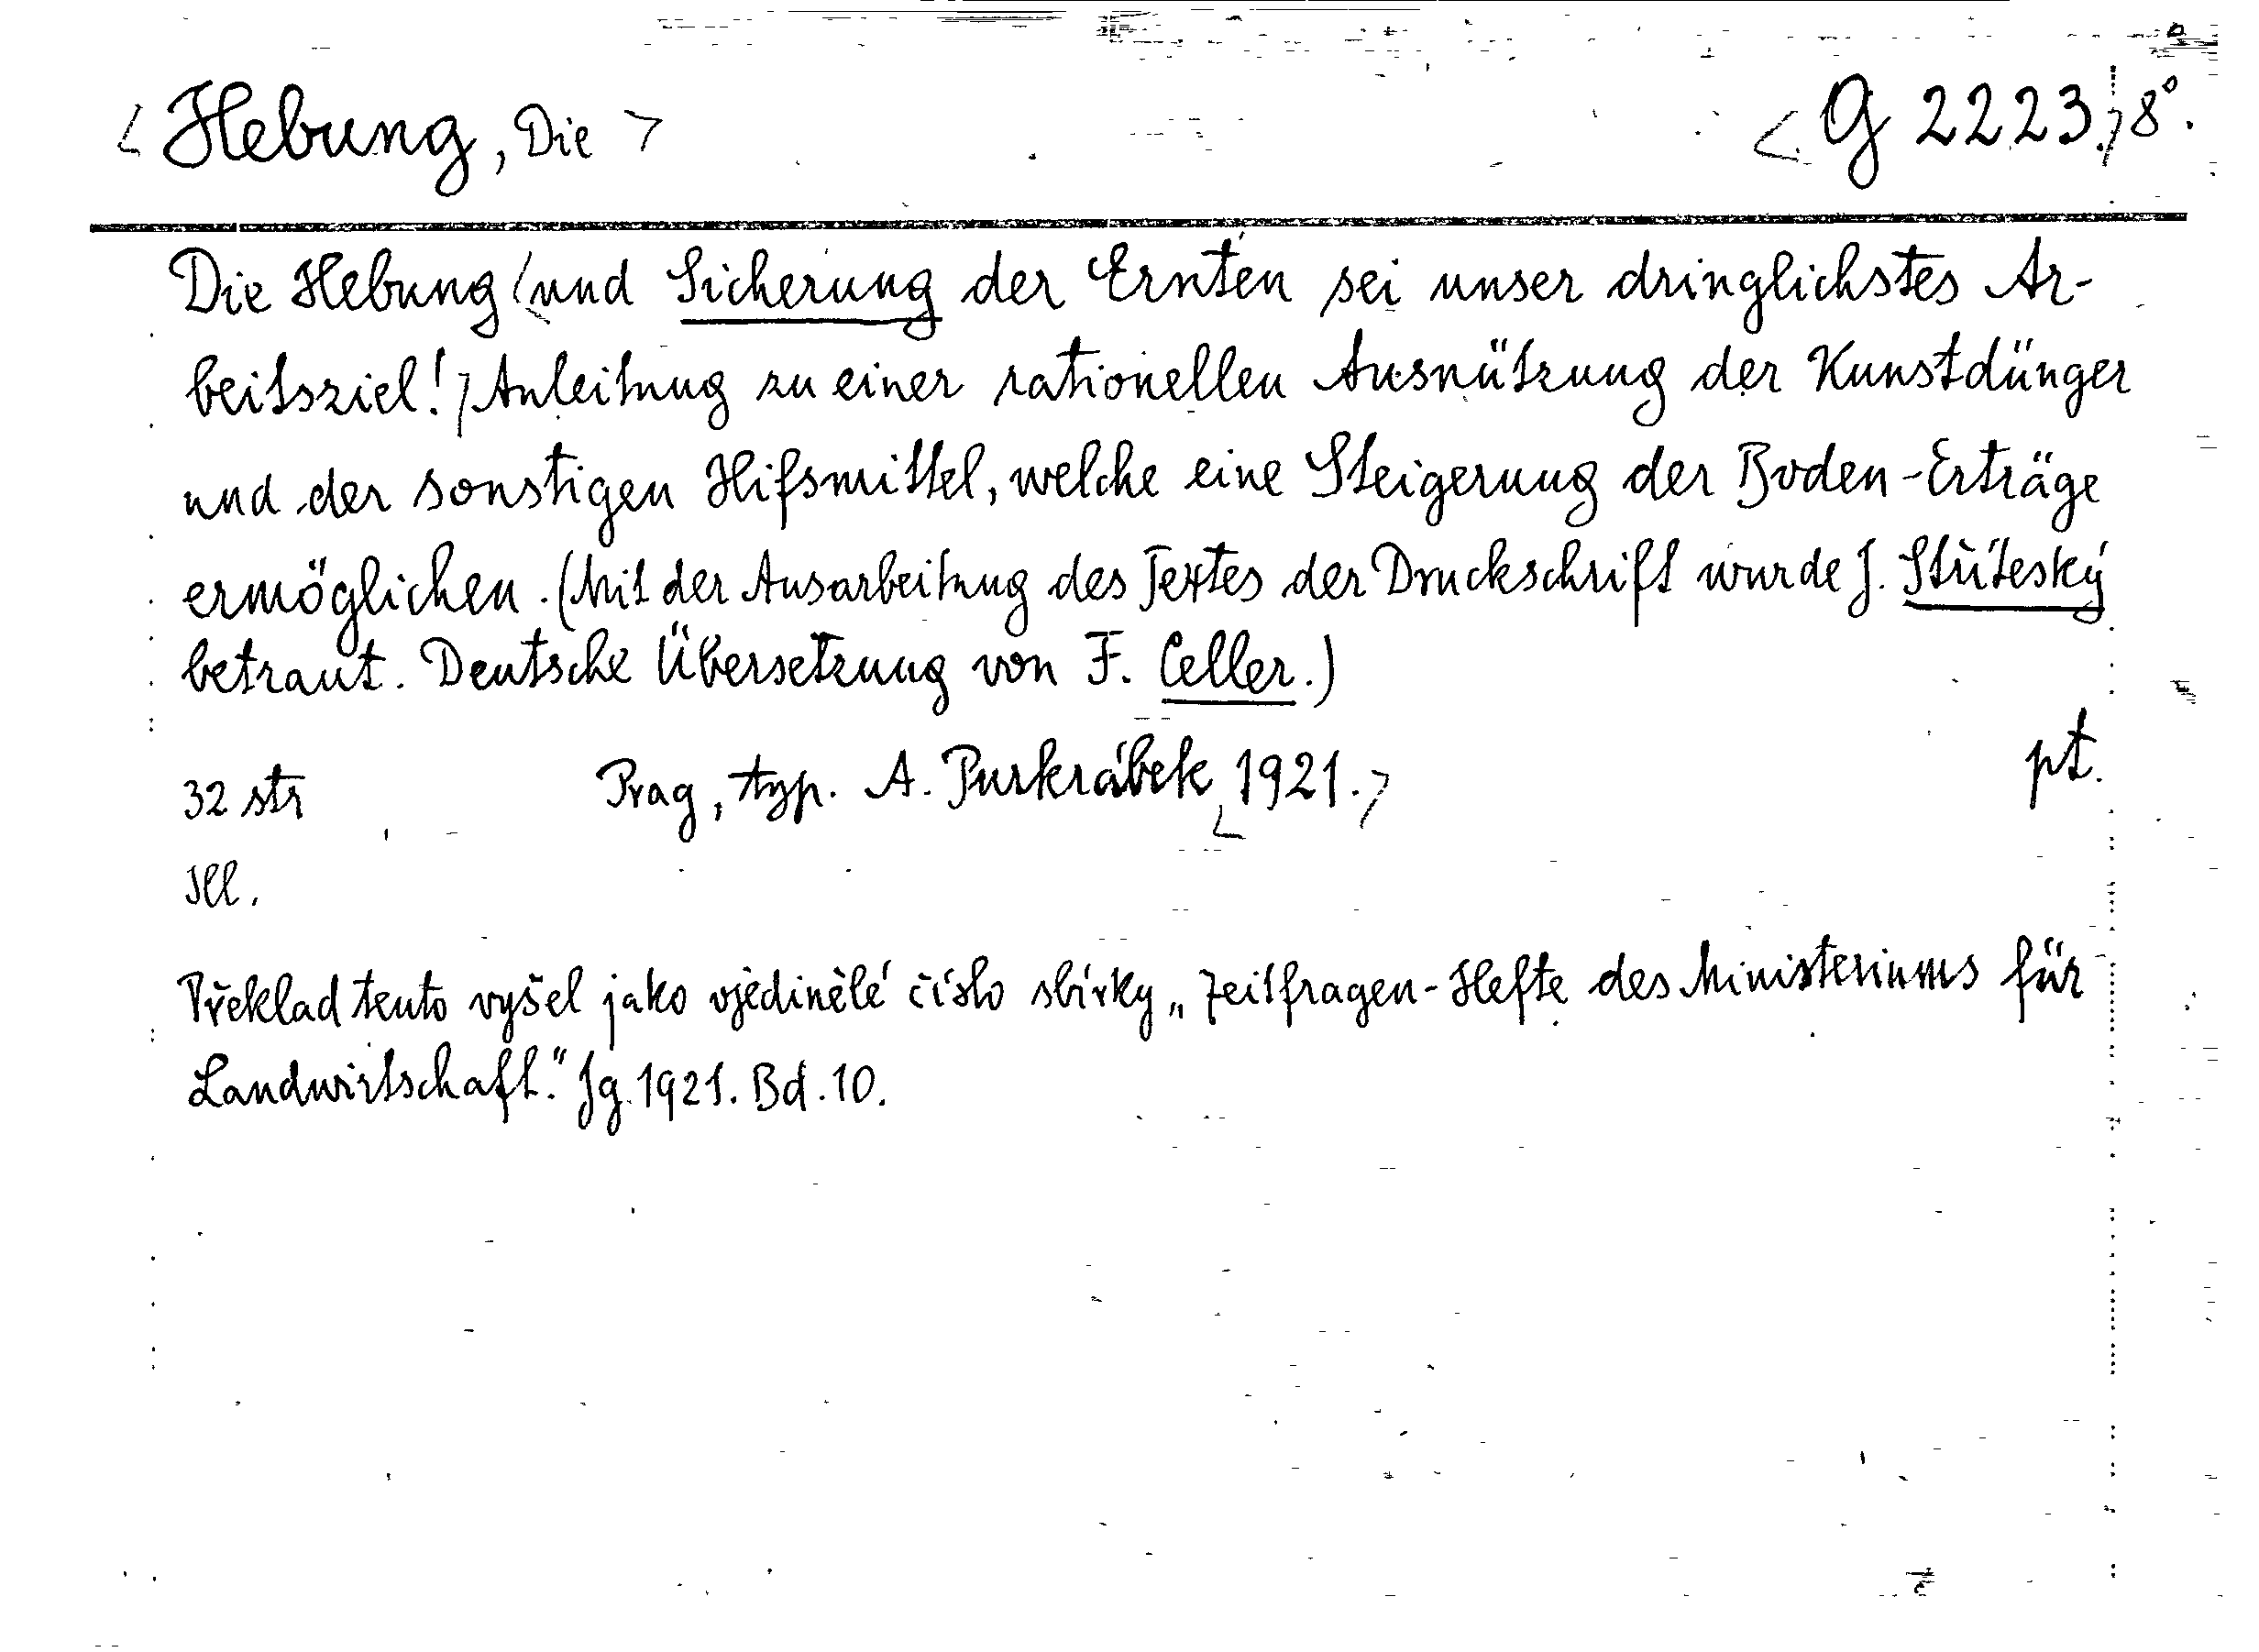 <Hebung, Die> <G 2223.> 8°.
Die Hebung <und Sicherung der Ernten sei unser dringlichstes Ar-
beitsziel!> Anleitung zu einer rationellen Ausnützung der Kunstdünger
und der sonstigen Hifsmittel, welche eine Steigerung der Boden-Erträge
ermöglichen. (Mit der Ausarbeitung des Textes der Druckschrift wurde J. Stříteský
betraut. Deutsche Übersetzung von F. Celler.)
32 str Prag, typ. A. Purkrábek <1921.> pt.
Ill.
Překlad tento vyšel jako ojedinělé číslo sbírky „Zeitfragen-Hefte des Ministeriums für
Landwirtschaft." Jg. 1921. Bd. 10.